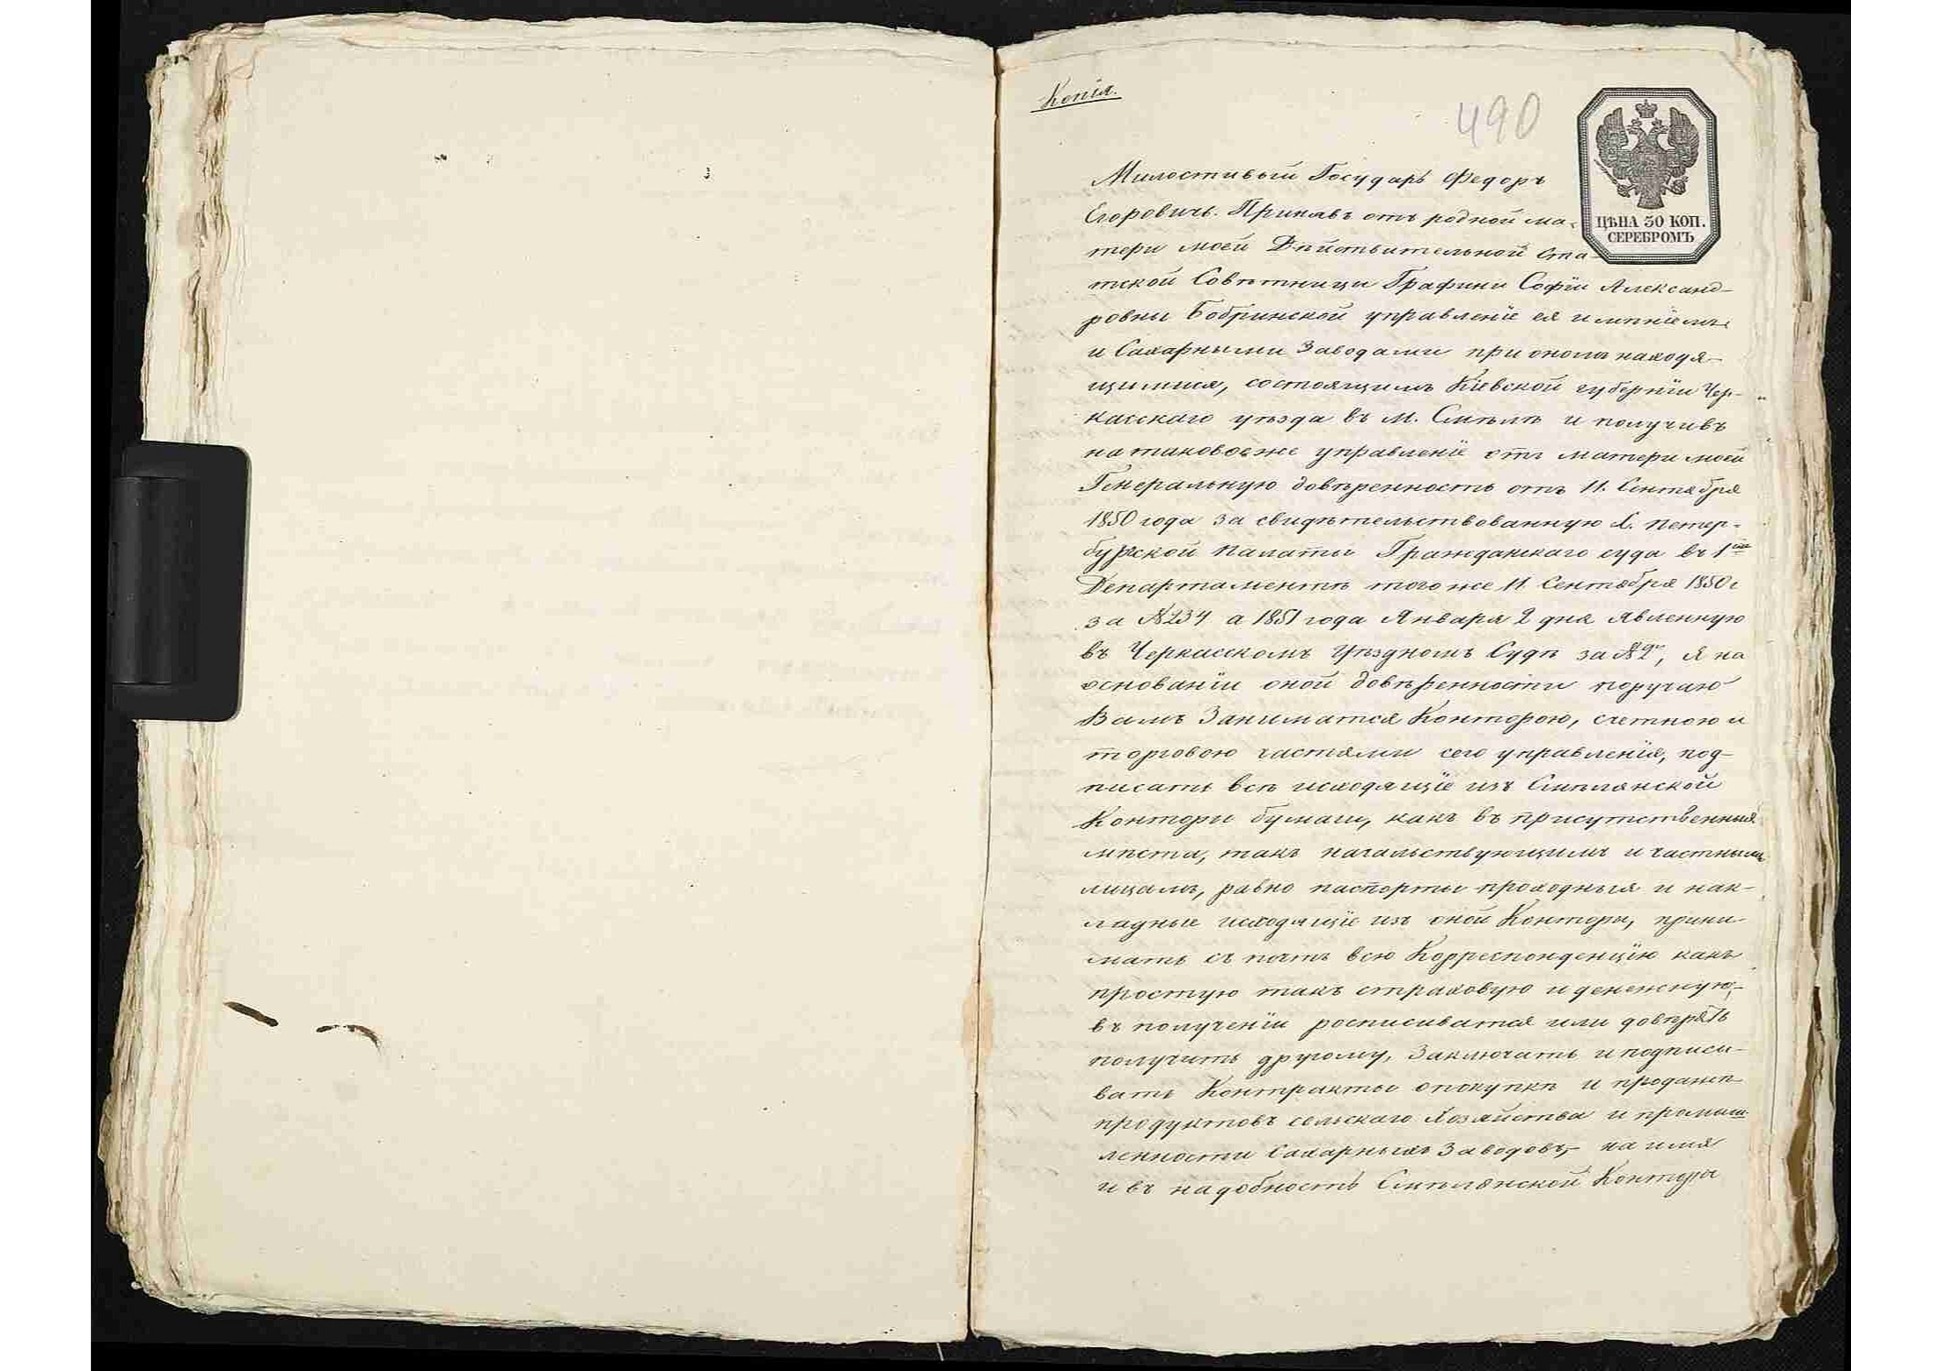 Копія.
490
ЦѢНА 30 КОП.
СЕРЕБРОМЪ
Милостивый Государь Федоръ
Егоровичъ. Принявъ отъ родной ма-
тери моей Дѣйствительной Ста-
тской Совѣтницы Графини Софіи Александ-
ровны Бобринской управленіе ея имѣніемъ
и Сахарными Заводами при ономъ находя-
щимися, состоящимъ Кіевской губерніи Чер-
касскаго уѣзда въ М. Смѣлѣ и получивъ
на таковое же управленіе отъ матери моей
Генеральную довѣренность отъ 11. Сентября
1850 года за свидѣтельствованную С. Петер-
бургской Палаты Гражданскаго суда въ 1мъ
Департаментѣ того же 11 Сентября 1850 г
за №234 а 1851 года Января 2 дня явленную
въ Черкасскомъ Уѣздномъ Судѣ за №2, я на
основаніи оной довѣренности поручаю
Вамъ Заниматся Конторою, счетною и
торговою частями сего управленія, под-
писать всѣ исходящіе изъ Смѣлянской
Конторы бумаги, какъ въ присутственныя
мѣста, такъ начальствующимъ и частнымъ
лицамъ, равно паспорты проходныя и нак-
ладные исходящіе изъ оной Конторы, прини-
мать съ почтъ всю Корреспонденцію какъ
простую такъ страховую и денежную,
въ полученіи росписыватся или довѣрять
получить другому, Заключать и подписы-
вать Контракты о покупкѣ и продажѣ
продуктовъ сельскаго Хозяйства и промыш-
ленности Сахарныхъ Заводовъ, на имя
и въ надобность Смѣлянской Конторы